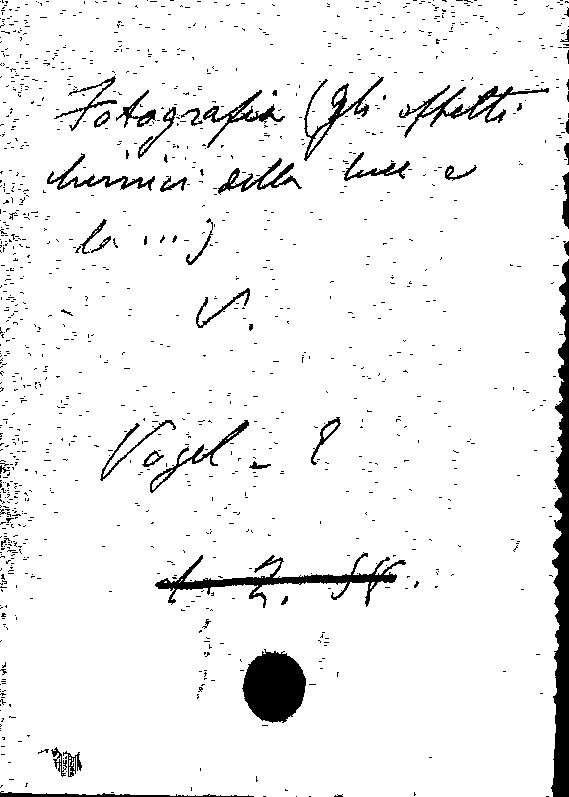 Fotografia (gli effetti
chimici della luce e
la ...)
V.
Vogel -
1. 2.